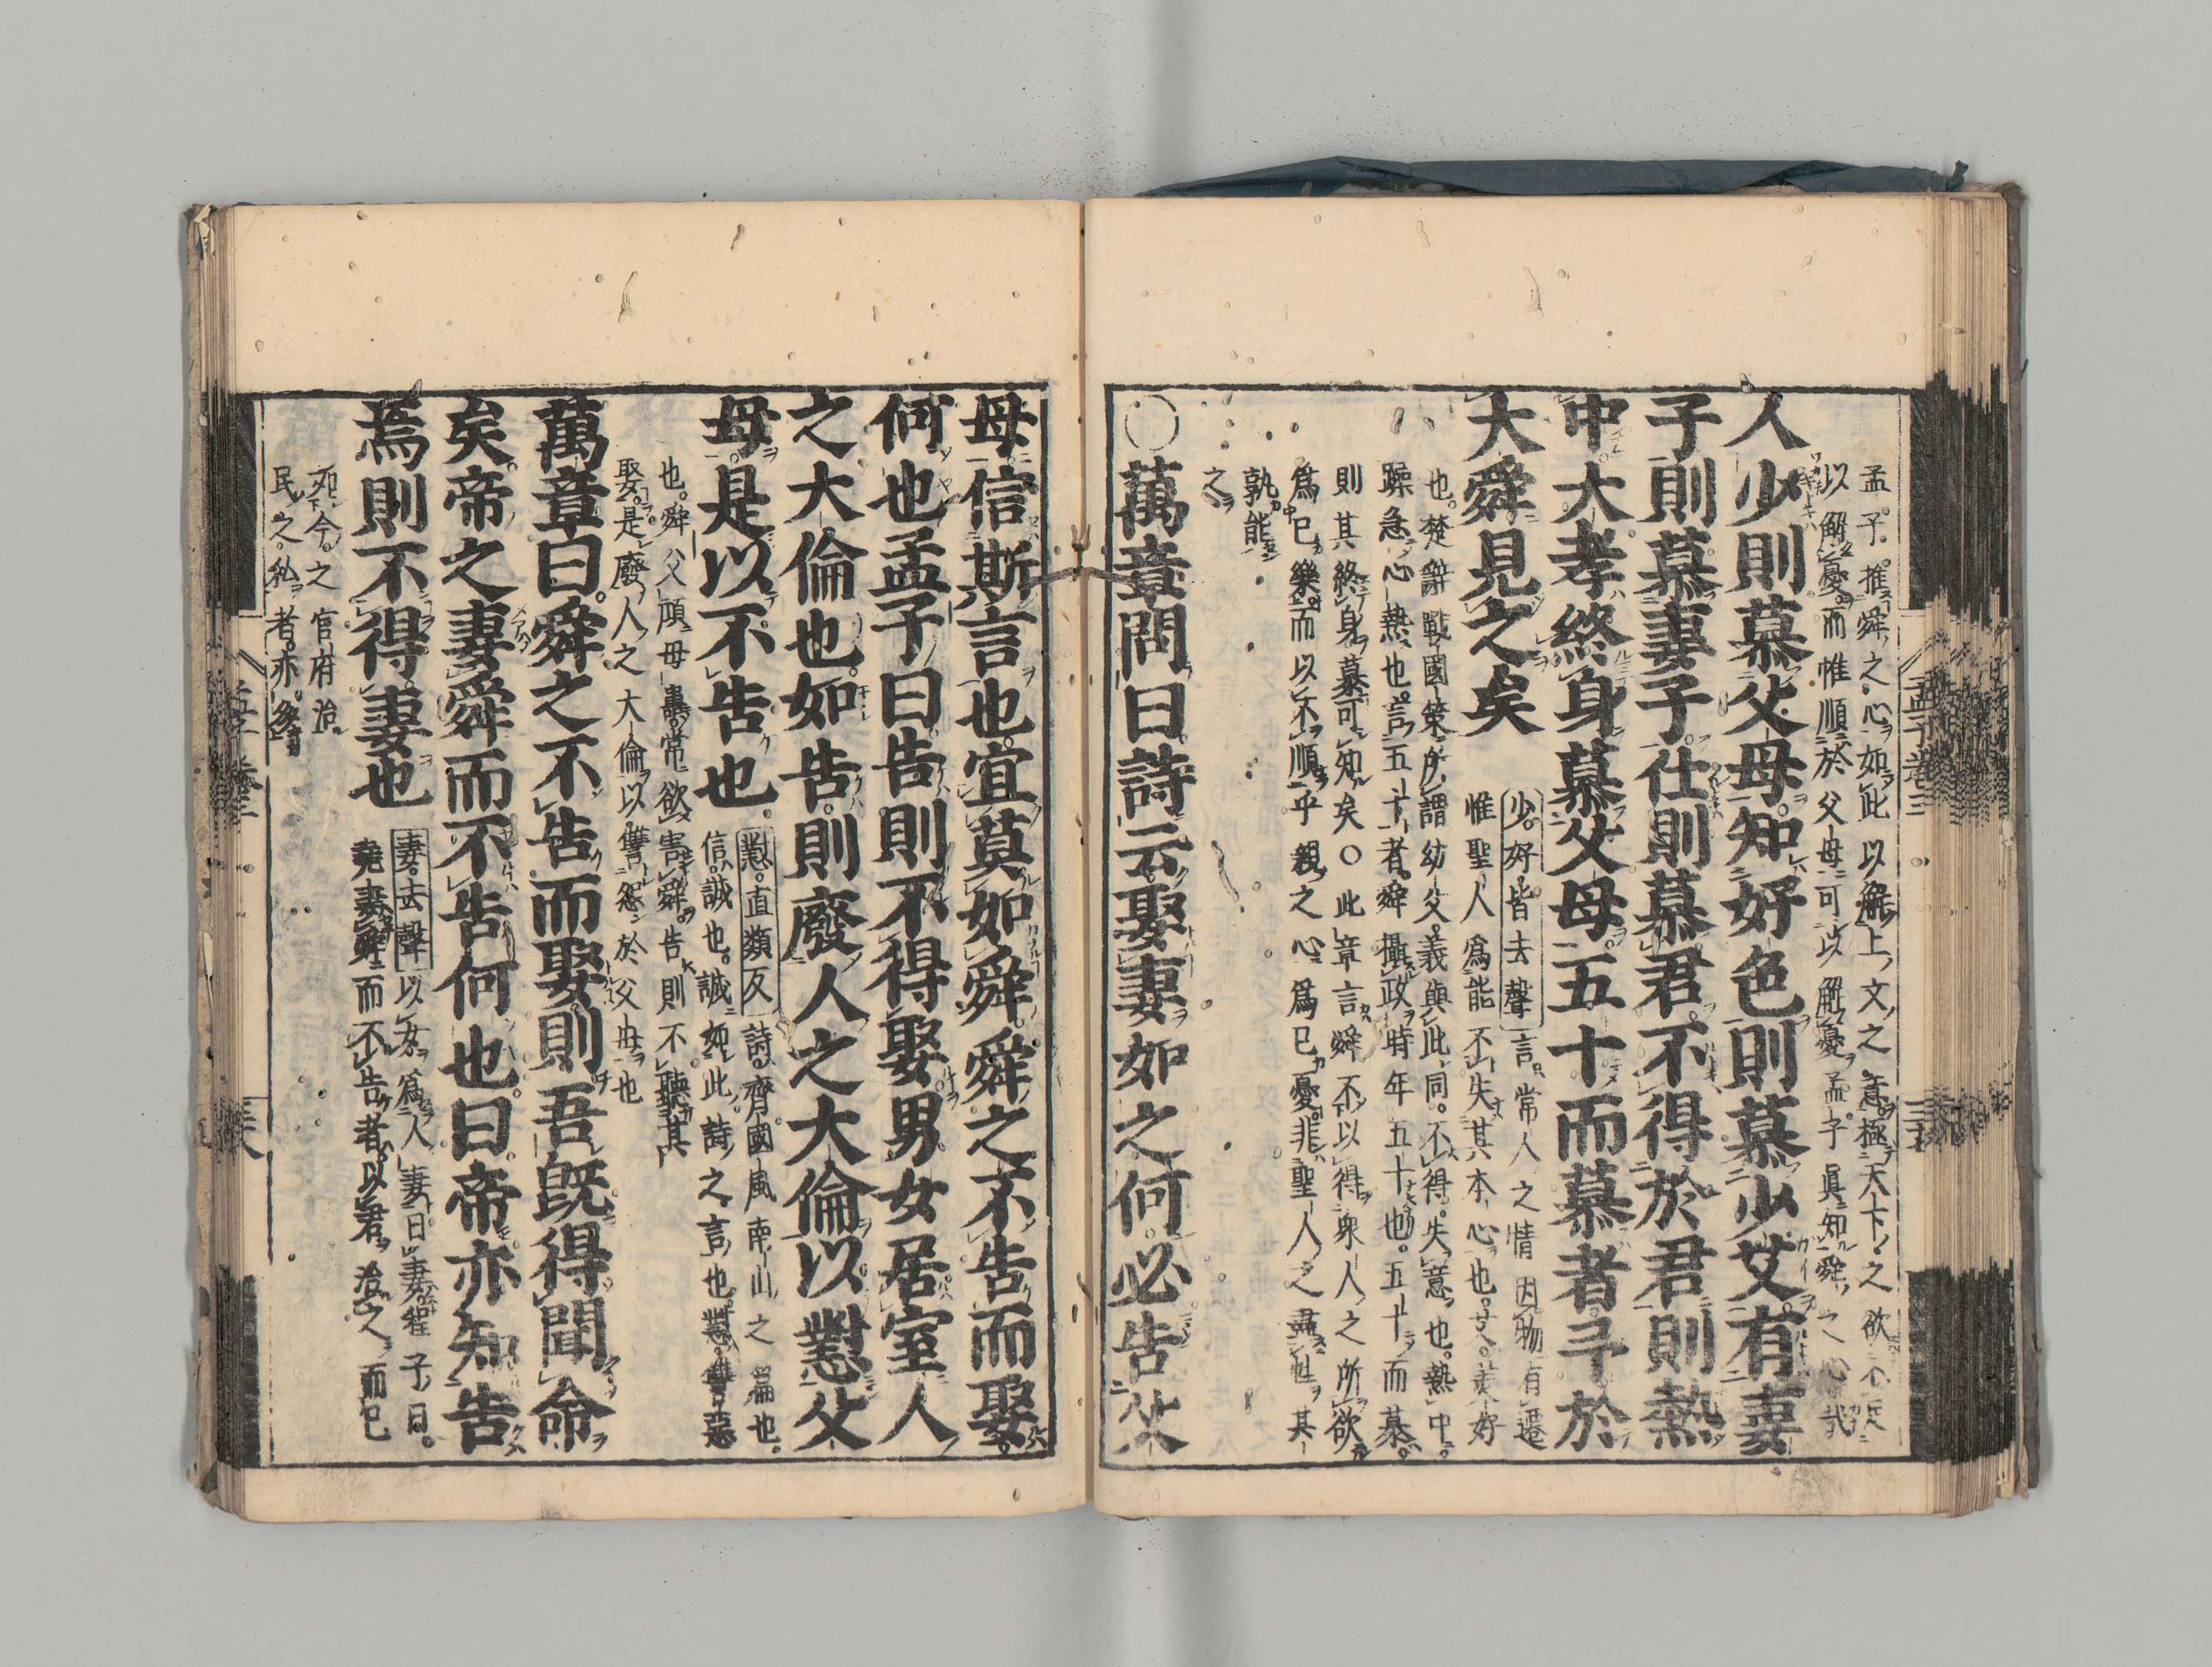 孟子推舜之心如此以解上文之意極天下之欲不足
以解憂而惟順於父母可以解憂孟子眞知舜之心哉
人少則慕父母知好色則慕少艾有妻
子則慕妻子仕則慕君不得於君則熱
中大孝終身慕父母五十而慕者予於
大舜見之矣
少好皆去聲言常人之情因物有遷
惟聖人爲能不失其本心也艾美好
也楚辭戰國策所謂幼艾義與此同不得失意也熱中
躁急心熱也言五十者舜攝政時年五十也五十而慕
則其終身慕可知矣○此章言舜不以得衆人之所欲
爲己樂而以不順乎親之心爲己憂非聖人之盡性其
孰能
之
○萬章問曰詩云娶妻如之何必告父
母信斯言也宜莫如舜舜之不告而娶
何也孟子曰告則不得娶男女居室人
之大倫也如告則廢人之大倫以懟父
母是以不告也
懟直類反詩齊國風南山之篇也
信誠也誠如此詩之言也懟讐怨
也舜父頑母嚚常欲害舜告則不聽其
娶是廢人之大倫以讐怨於父母也
萬章曰舜之不告而娶則吾既得聞命
矣帝之妻舜而不告何也曰帝亦知告
焉則不得妻也
妻去聲以女爲人妻曰妻程子曰
堯妻舜而不告者以君治之而已
如今之官府治
民之私者亦多
孟子卷三
三十五
孟子卷三
三十六